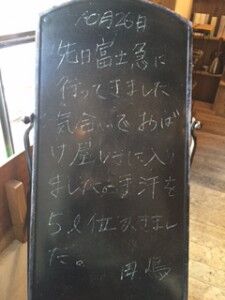 10月26日
先日富士急に
行ってきました
気合いでおばけ
屋しきに入り
ました。手汗を
5ℓ位かきまし
た。